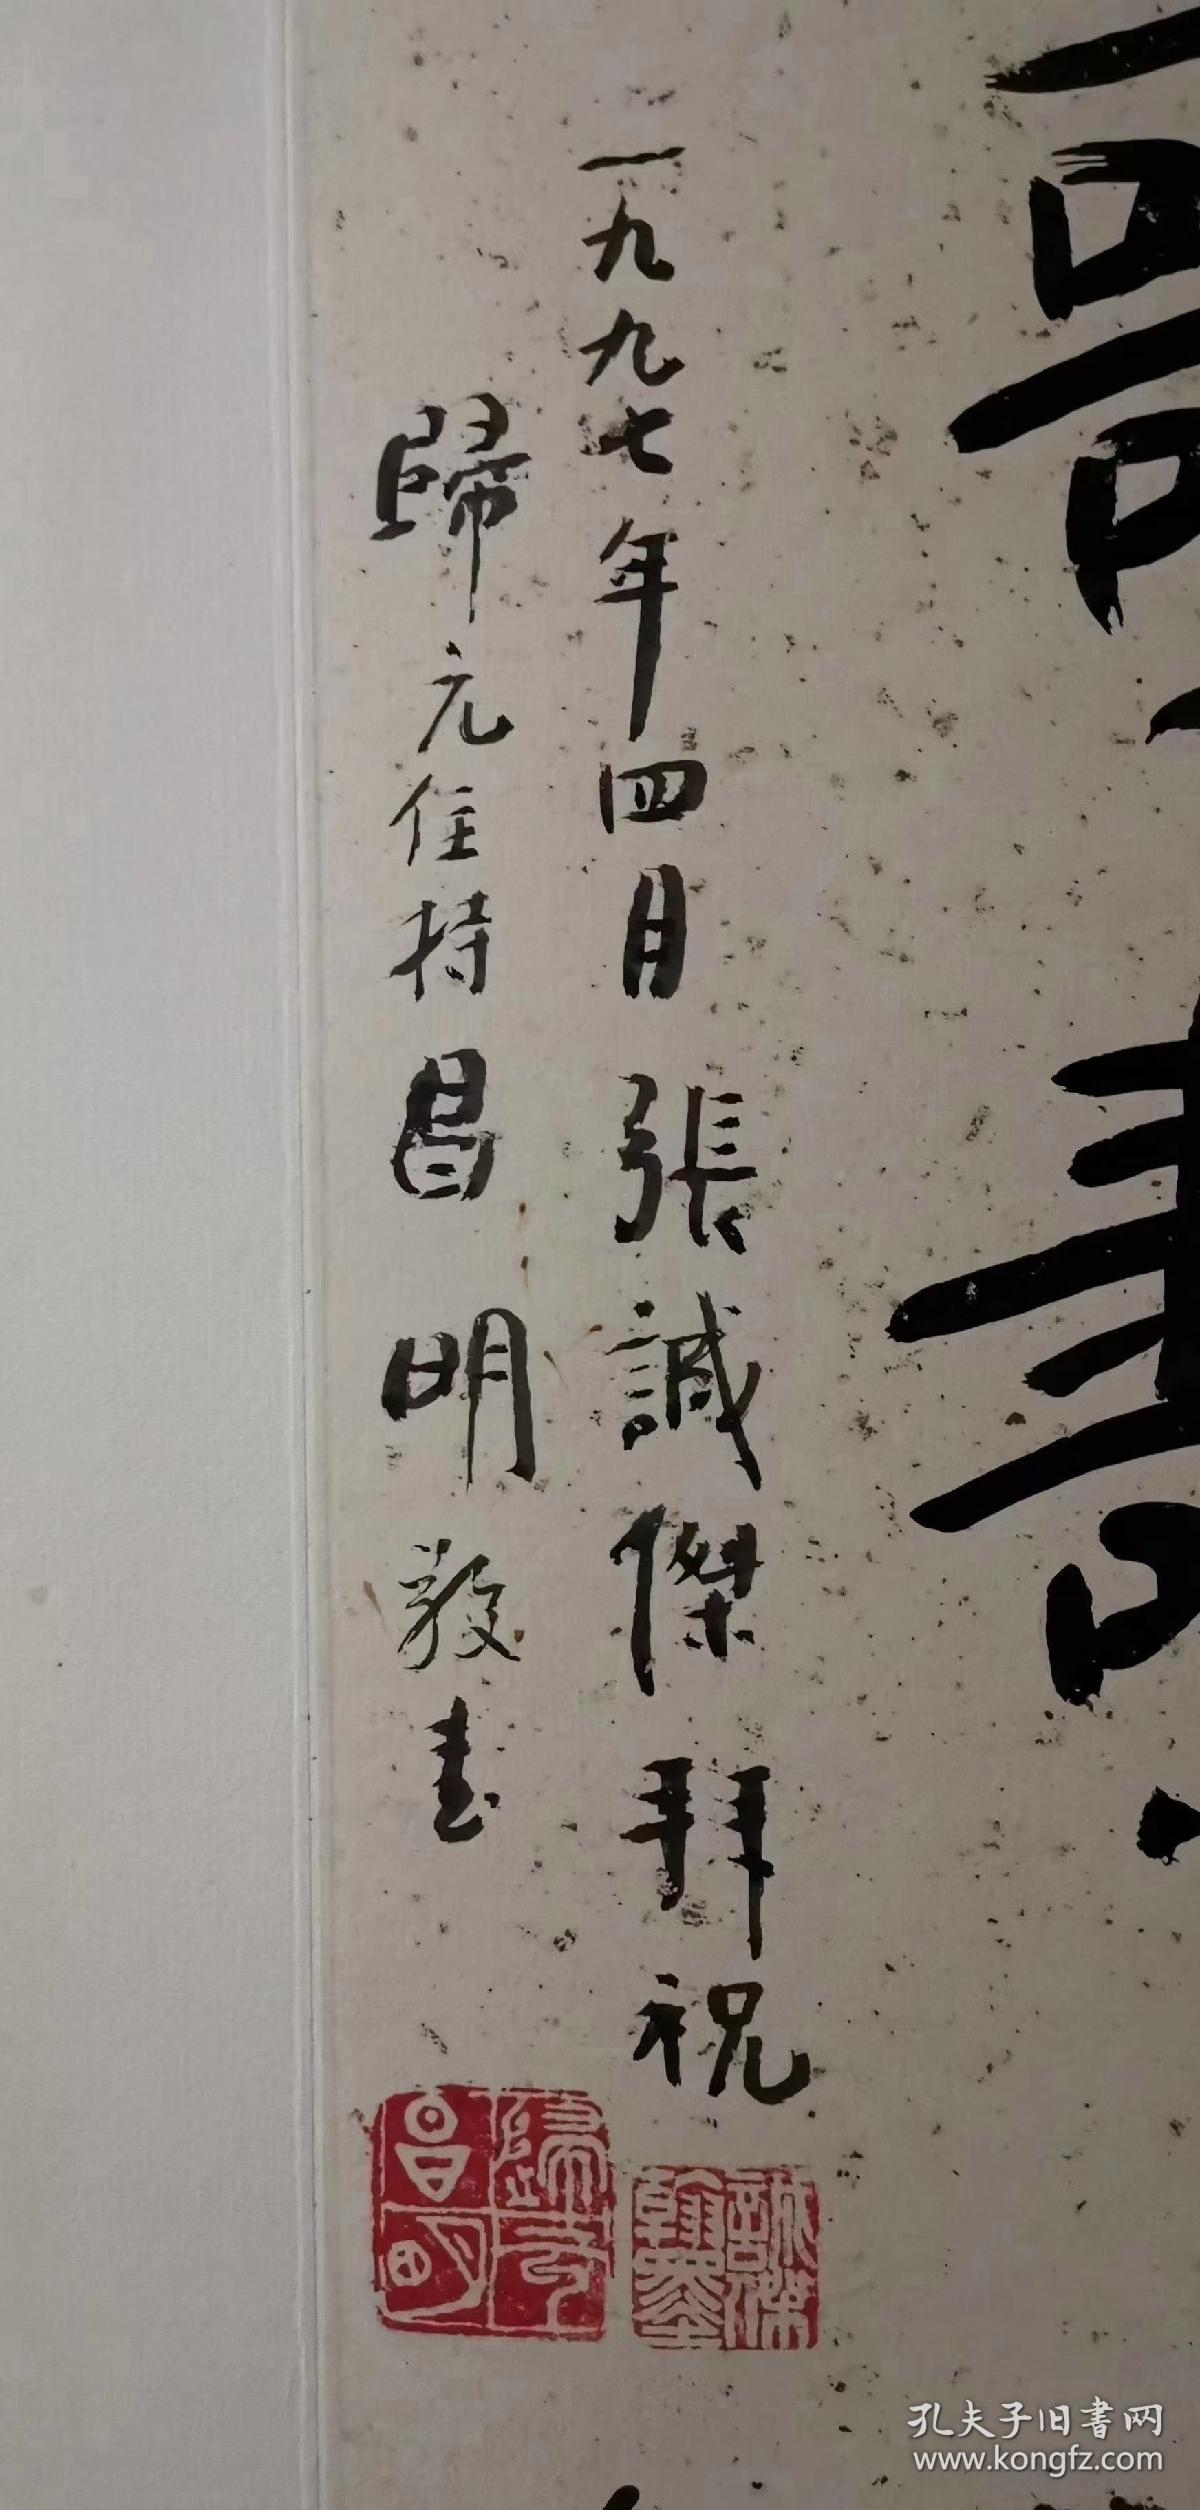 一九九七年四月張誠傑拜祝
歸元住持昌明敬书
誠傑
翰墨
歸元
昌明
孔夫子旧書网
www.kongfz.com